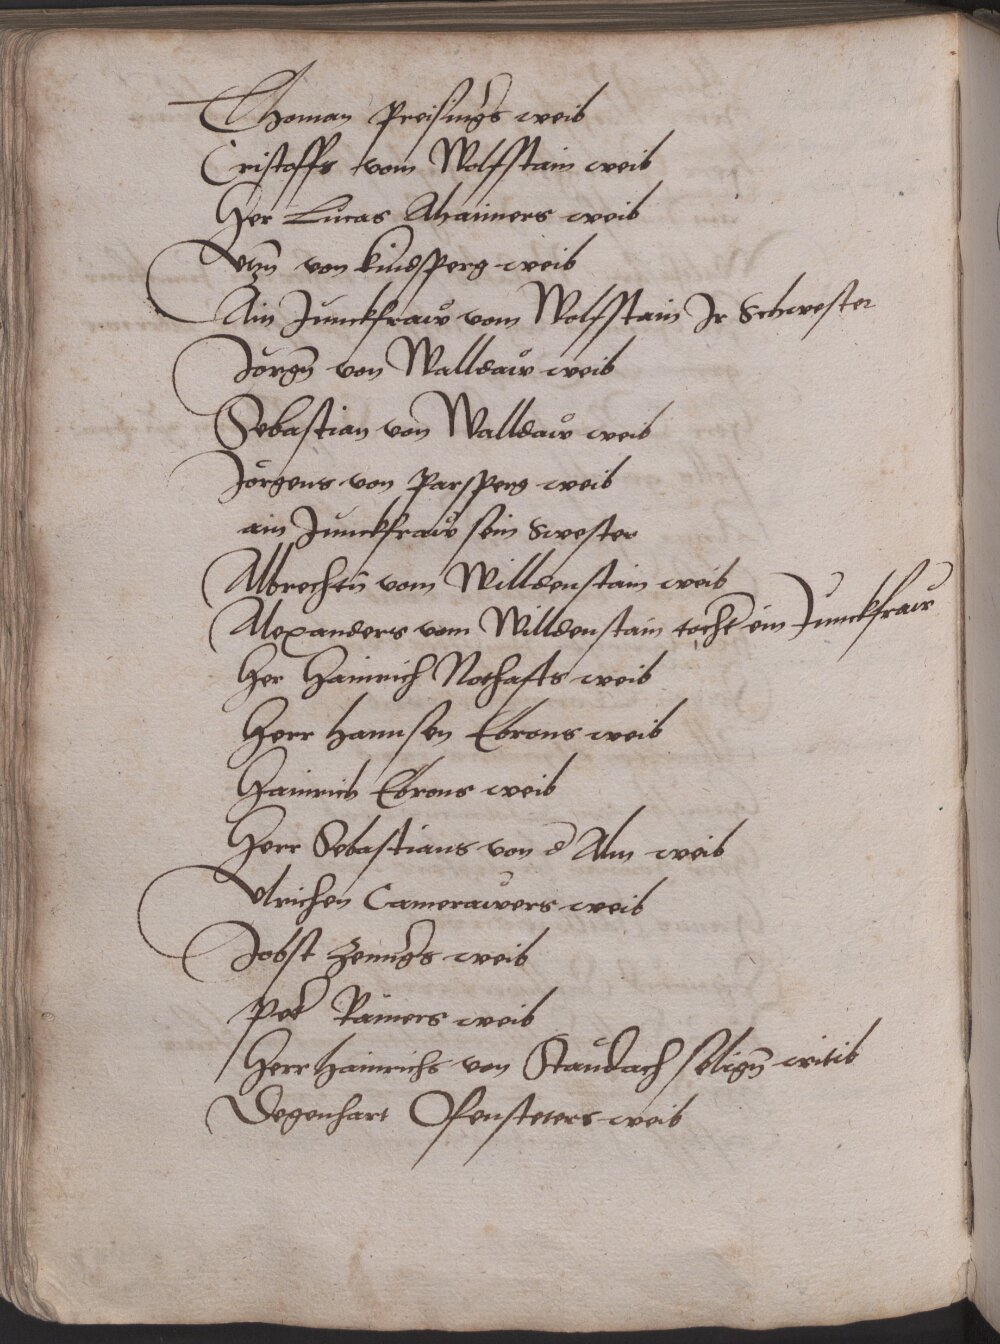 Thoman Preisingers weib
Cristoffs vom Wolfstain weib
Her Lucas Ahaimers weib
Utzn von kindsperg weib
Ain Junckfraw vom Wolfstain Ir Schwester
Jorgn von Walldaw weib
Sebastian von Walldaw weib
Jörgens von Parsperg weib
ain Junckfraw sein Swester
Albrechten vom Willdenstain weib
Alexanders vom Willdenstain tocht ein Junckfraw
Her Hainrich Nothafts weib
Herr hannsen Ebrons weib
Hainrich Ebrons weib
Herr Sebastians von d Alm weib
Ulrichen Camerawers weib
Jobst Zengers weib
Pet Rainers weib
Herr Hainrichs von Staudach selign witib
Degenhart Ofensteters weib